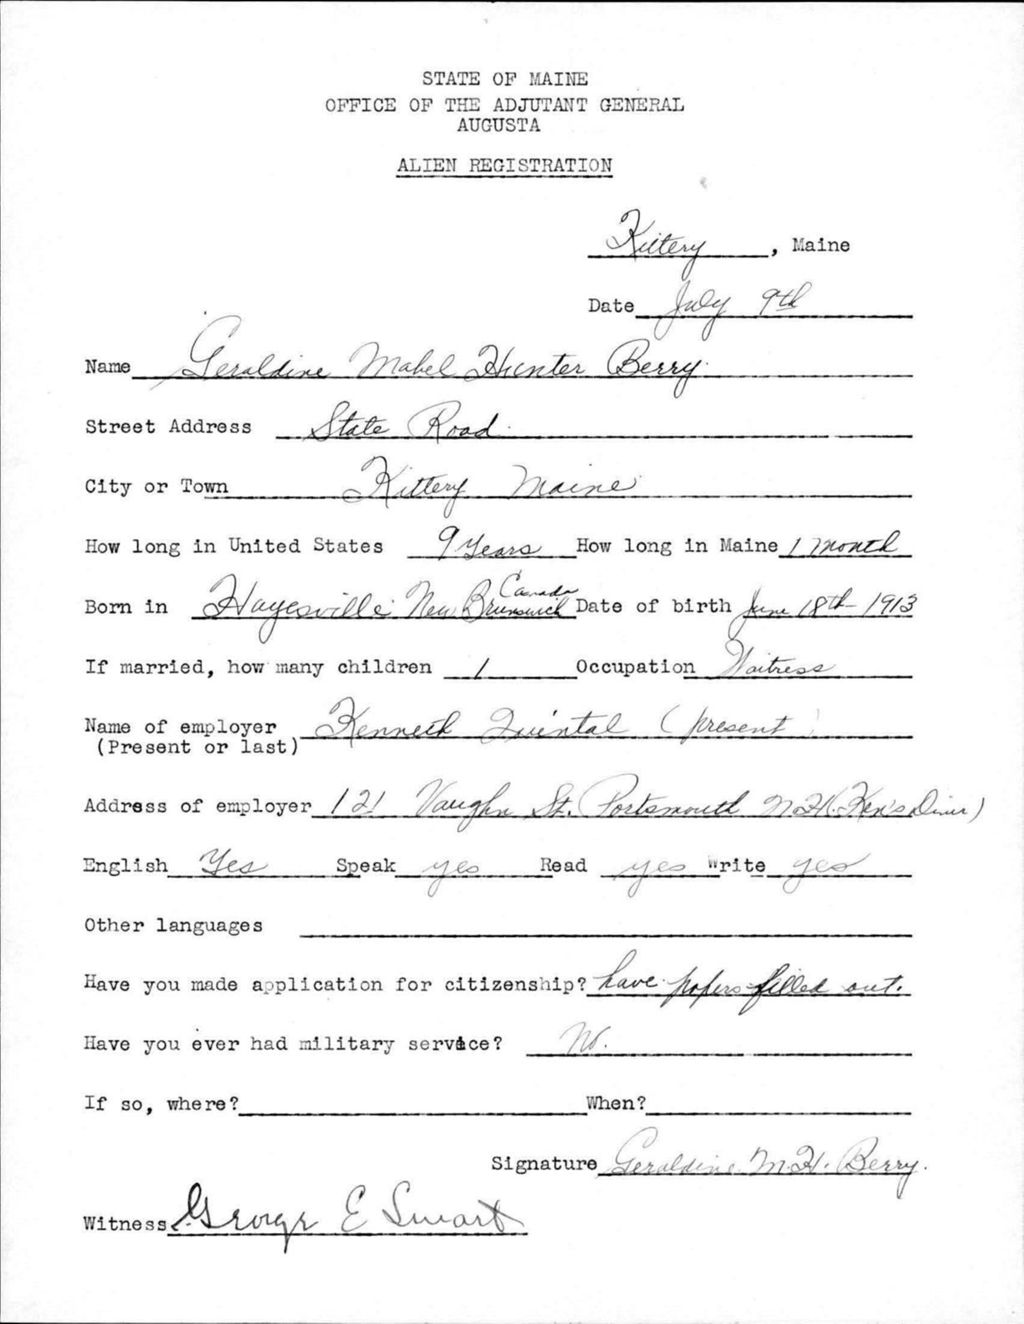 STATE OF MAINE
OFFICE OF THE ADJUTANT GENERAL
AUGUSTA
ALIEN REGISTRATION
Kittery, Maine
Date July 9th
Name Geraldine Mabel Hunter Berry.
Street Address State Road.
City or Town Kittery Maine
How long in United States 9 Years How long in Maine 1 month
Born in Hayesville New Brunswick Canada Date of birth June 18th - 1913
If married, how many children 1 Occupation Waitress
Name of employer Kenneth Quintal (present)
(Present or last)
Address of employer 121 Vaughn St. Portsmouth N.H. (Ken's Diner)
English Yes Speak yes Read yes Write yes
Other languages
Have you made application for citizenship? have papers filled out.
Have you ever had military service? No.
If so, where? When?
Signature Geraldine M.H. Berry.
Witness George E Swart